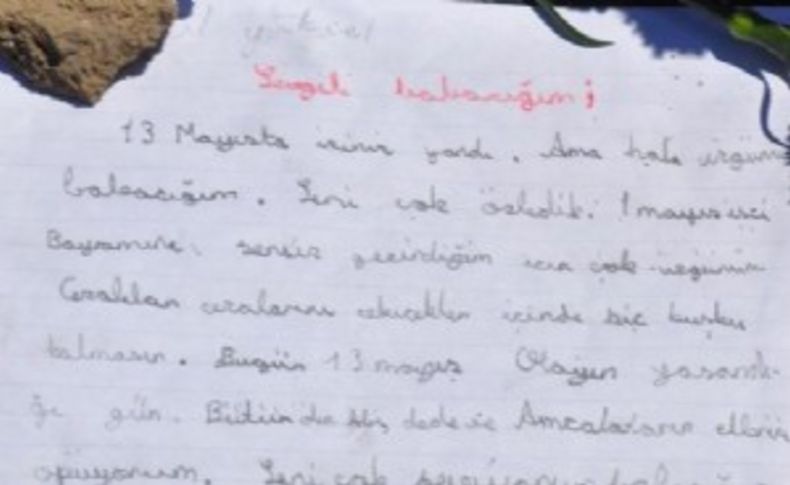 Sevgili babacığım;
13 Mayısta yandı. Ama hala üzgünüm
babacığım. Seni çok özledik. 1 mayıs işci
Bayramını sensiz geçirdiğim için çok üzgünüm
cezalarını çekicekler içinde hiç kuşku
kalmasın. Bugün 13 mayıs Olayın yaşandı-
ğı gün. Bütün dede ve Amcaların ellerin
öpüyorum. Seni çok seviyorum